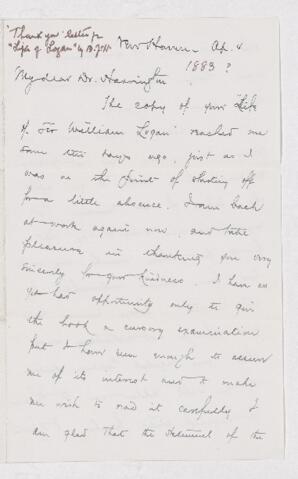 "Thank you" letter for
"Life of Logan" by B.J.H.
New Haven Ap. 4
1883?
My dear Dr. Harrington
The copy of your "Life
of Sir William Logan" reached me
some ten days ago, just as I
was on the point of starting off
for a little absence. I am back
at work again now, and take
pleasure in thanking you very
sincerely for your kindness. I have as
yet had opportunity only to give
the book a cursory examination
but I have seen enough to assure
me of its interest and to make
me wish to read it carefully. I
am glad that the of the